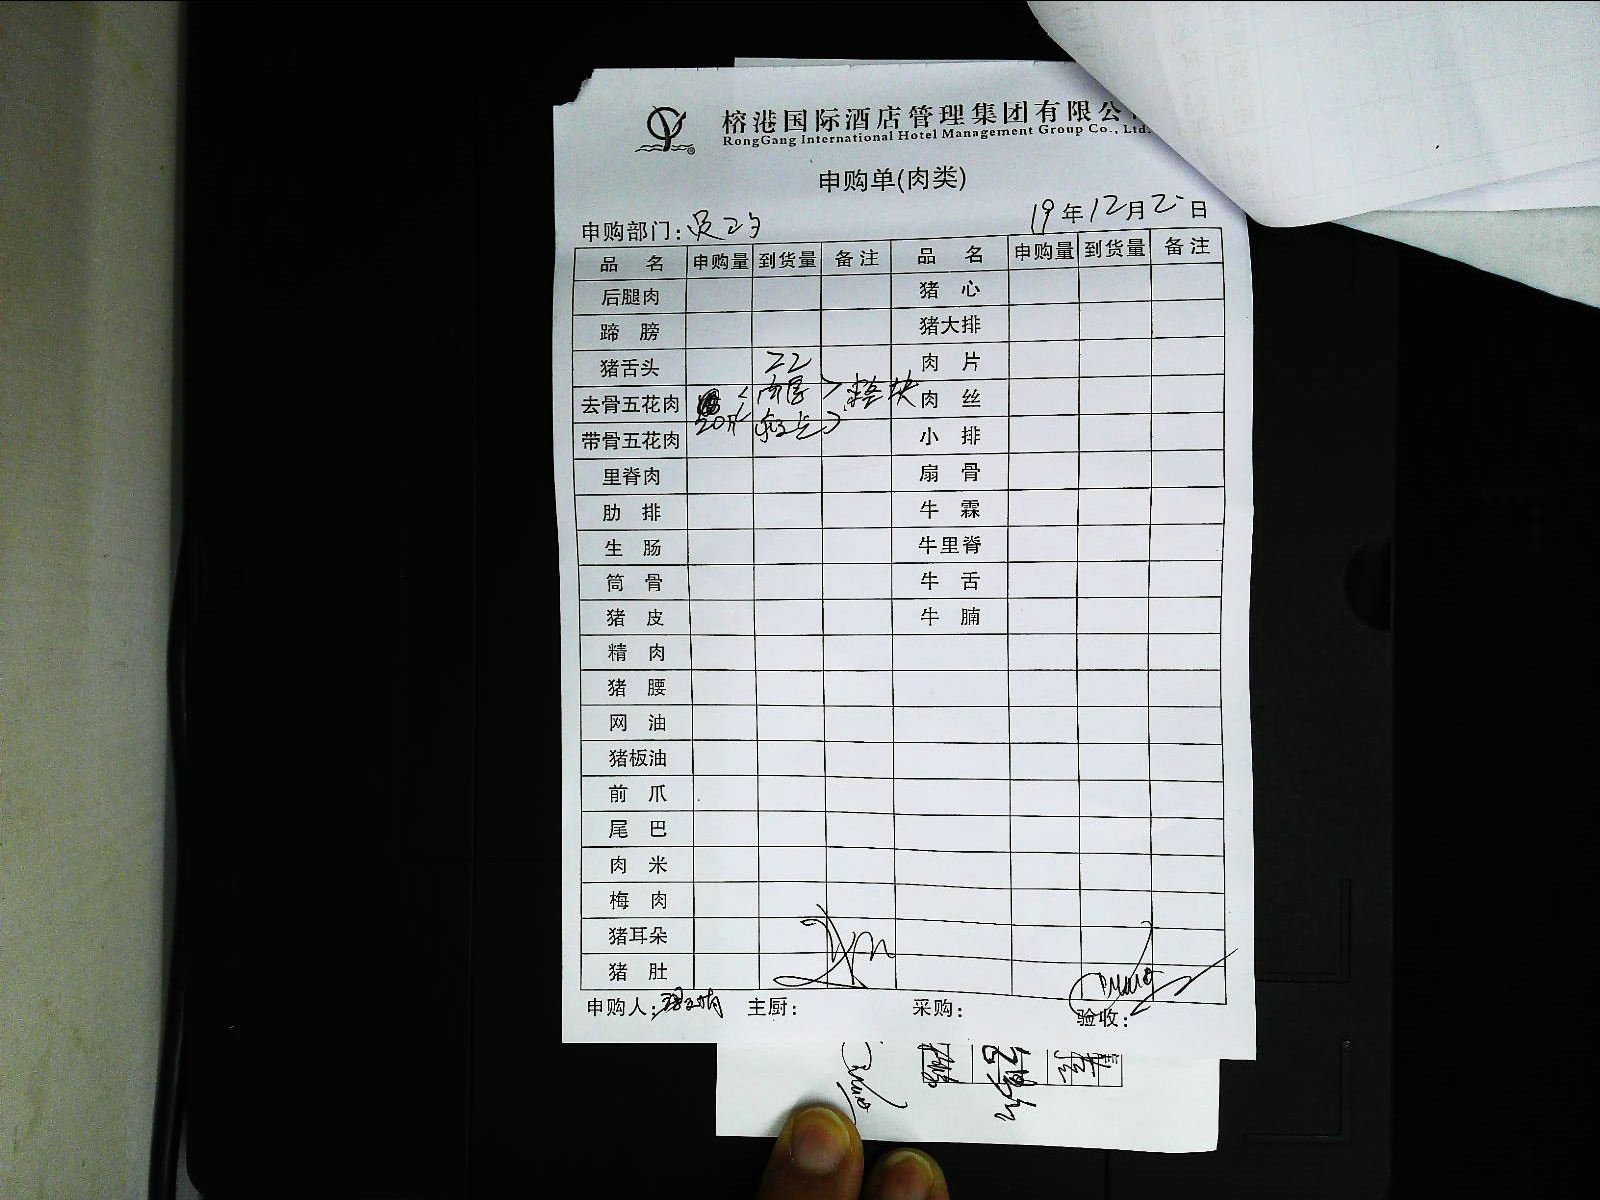 榕港国际酒店管理集团有限公
RongGang International Hotel Management Group Co., Ltd.
申购单(肉类)
申购部门:
19年12月20日
品名 申购量 到货量 备注 品名 申购量 到货量 备注
后腿肉 猪心
蹄膀 猪大排
猪舌头 22 肉片
去骨五花肉 整块 肉丝
带骨五花肉 20斤 小排
里脊肉 扇骨
肋排 牛霖
生肠 牛里脊
筒骨 牛舌
猪皮 牛腩
精肉
猪腰
网油
猪板油
前爪
尾巴
肉米
梅肉
猪耳朵
猪肚
申购人: 主厨: 采购: 验收: